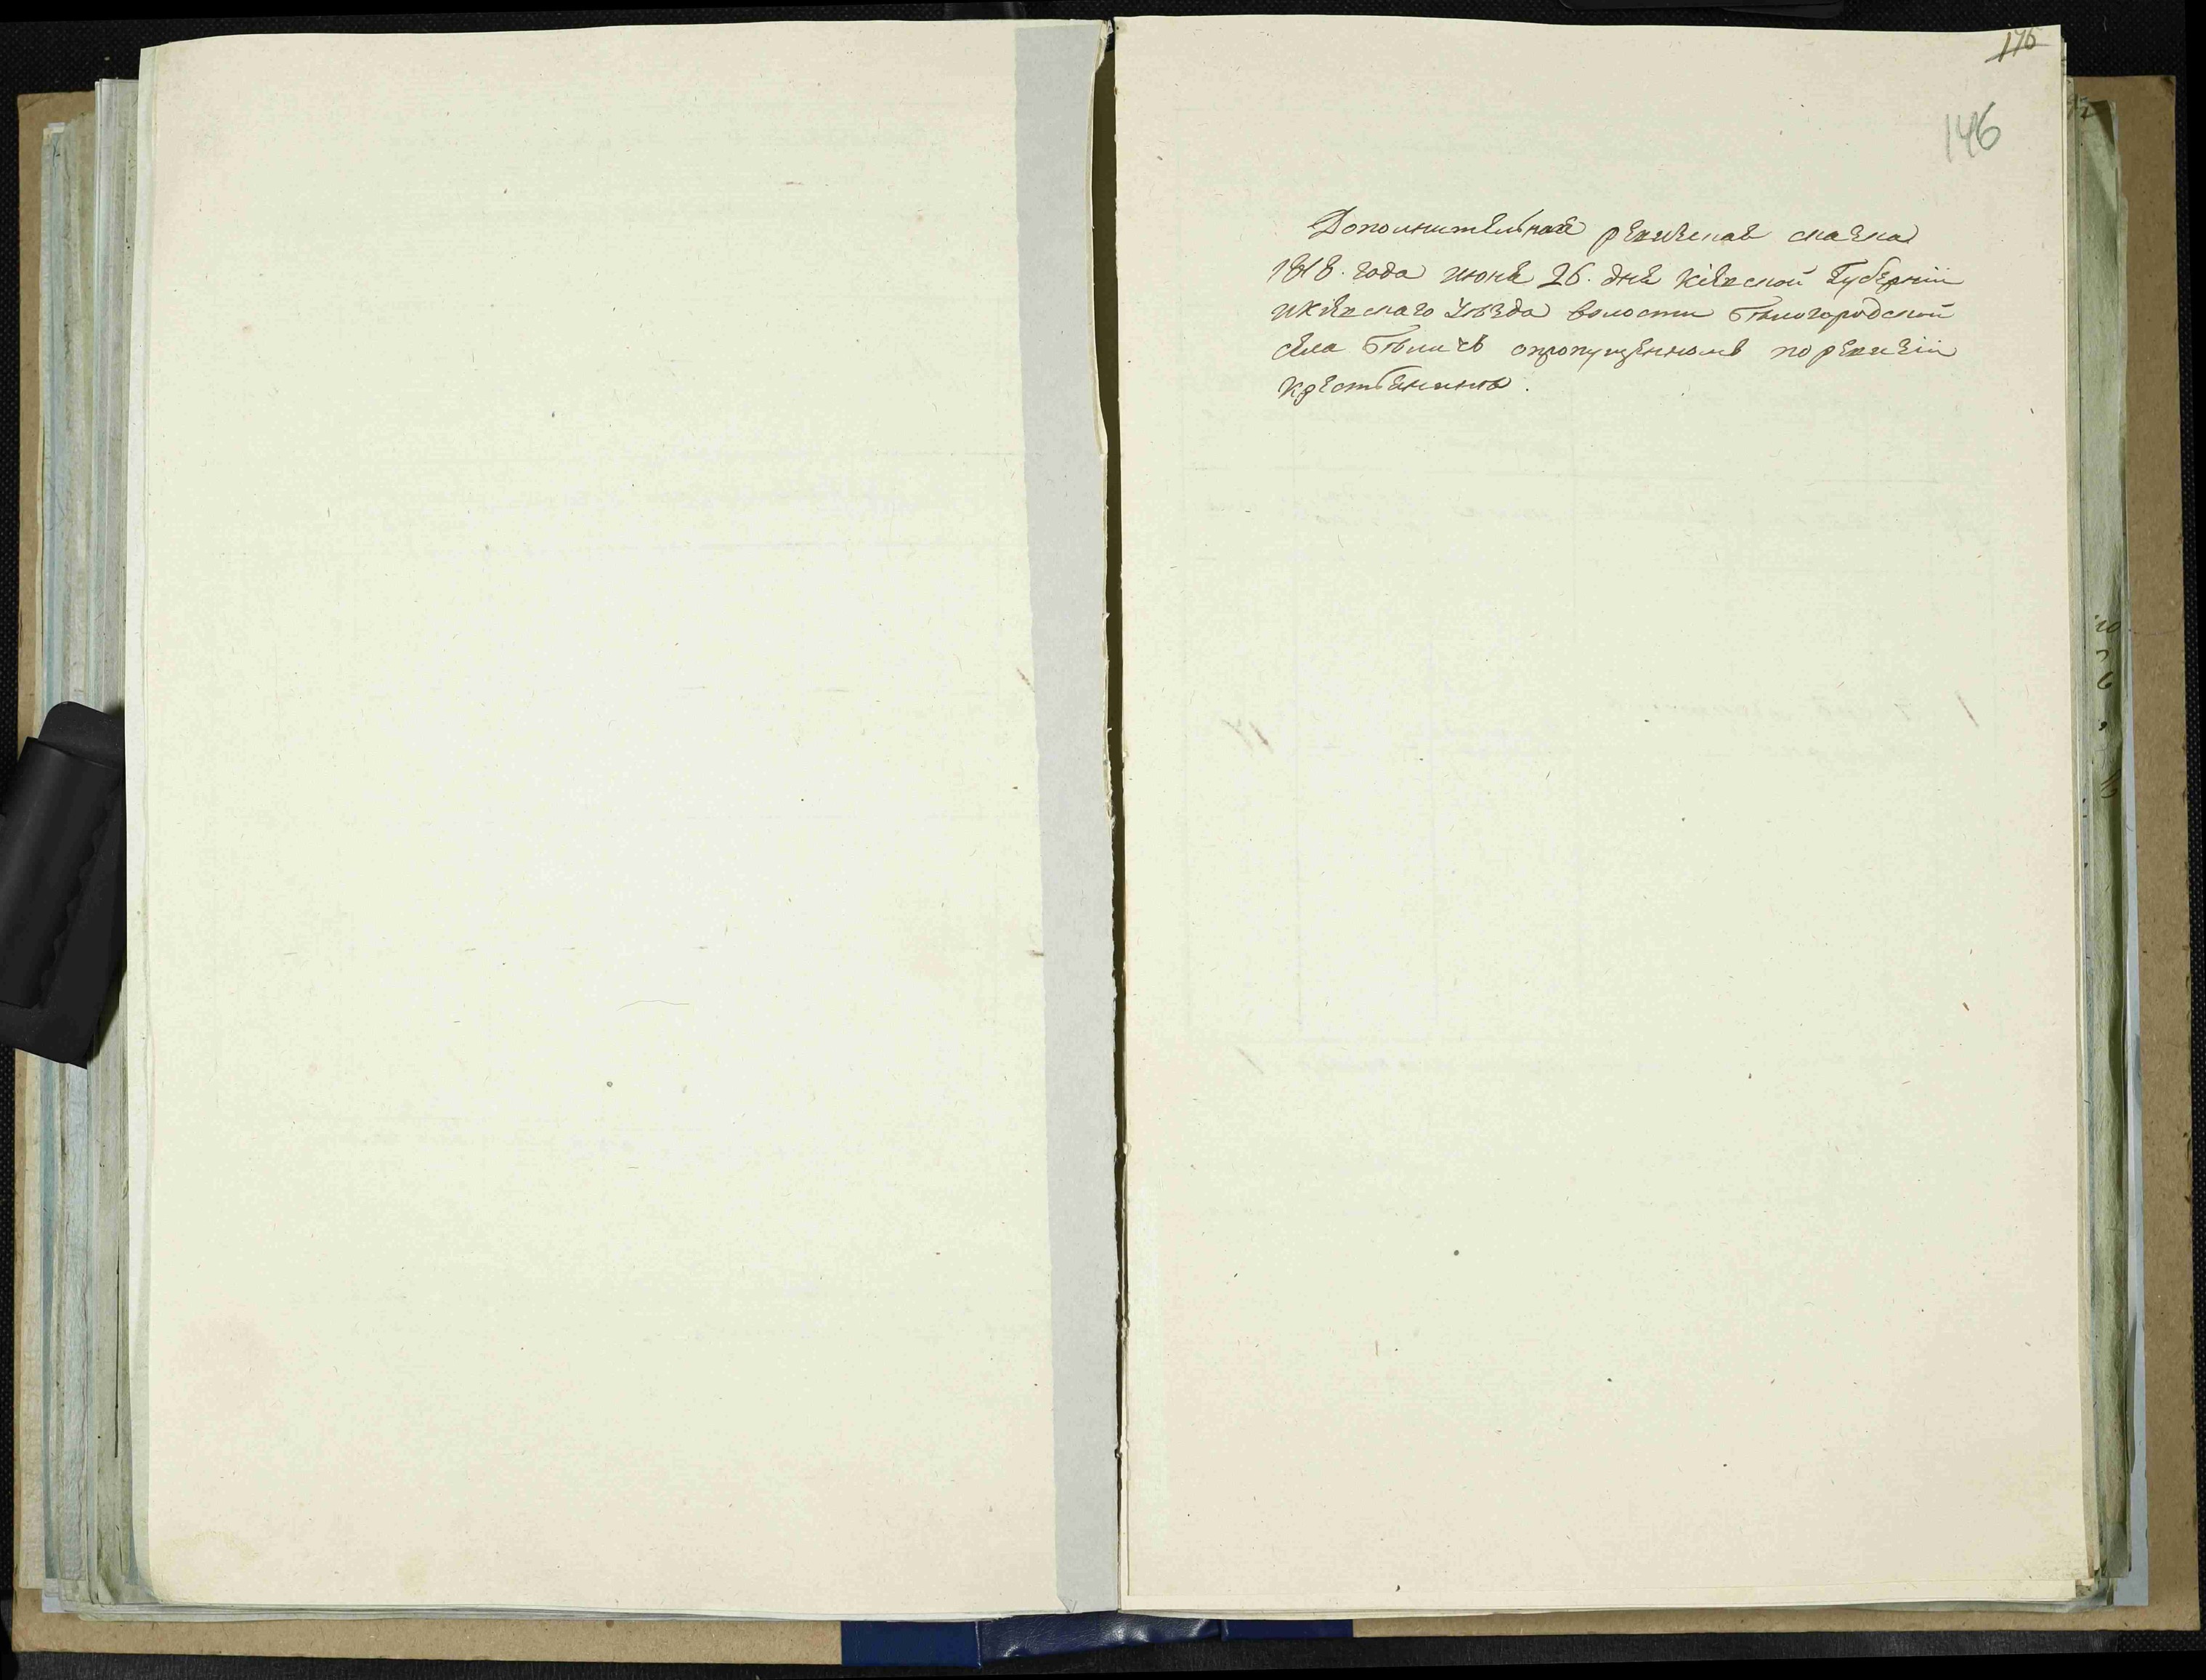 176
146
Дополнительная ревизская сказка
1818. года июня 26. дня Кіевской Губерніи
и Кіевскаго Уѣзда волости Бѣлогородской
села Бѣличъ опропущенномъ по ревизіи
крестьянинѣ.